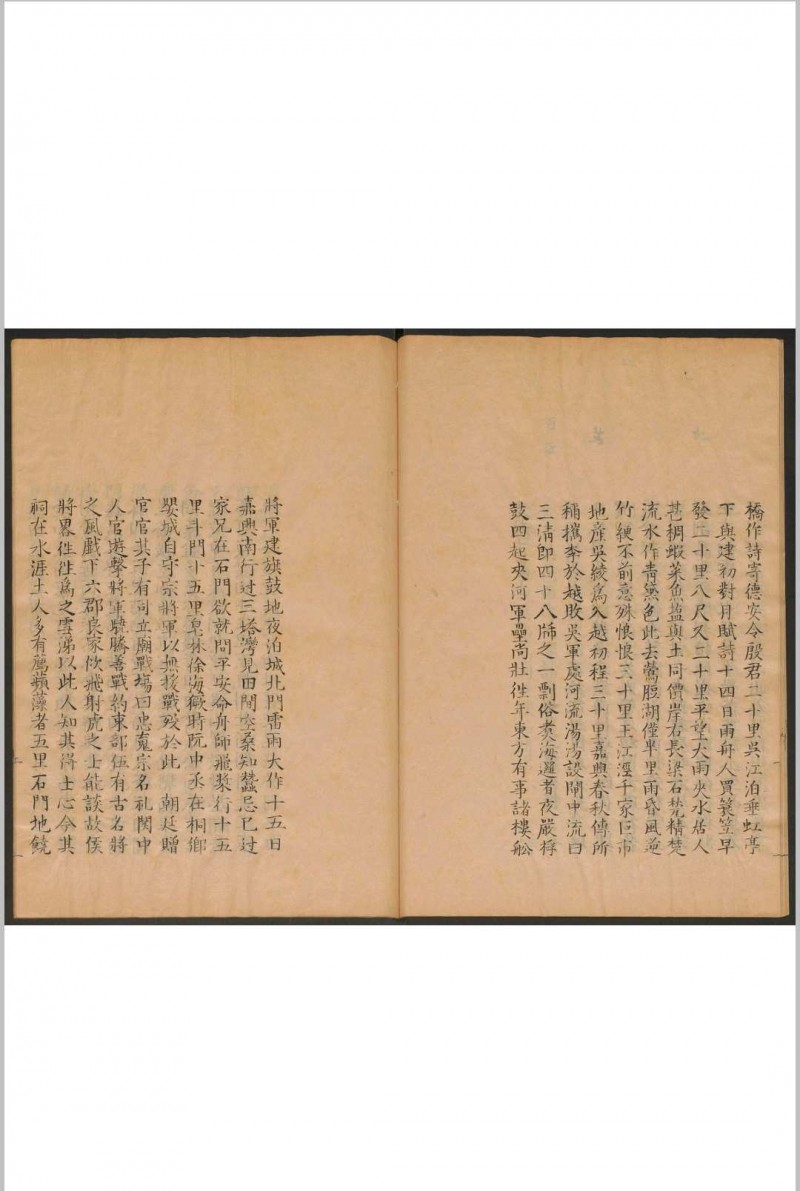 橋作詩寄德安令殷君二十里吳江泊垂虹亭
下與建初對月賦詩十四日雨舟人買簑笠早
發二十里八尺又二十里平望大雨夾水居人
苍稠蝦菜魚盐與土同價岸右長梁石甃精楚
流水作青黛色此去鶯脰湖僅半里雨昏風逆
竹緶不前意殊悵悵三十里王江涇千家巨市
地產吳綾為入越初程三十里嘉興春秋傳所
稱攜李於越敗吳軍處河流湯湯設閘中流曰
三清即四十八牐之一剽俗煑海邏者夜嚴桴
鼓四起夾河軍壘尚壯徃年東方有事諸樓舩
將軍建旗鼓地夜泊城北門雷雨大作十五日
嘉興南行过三塔灣見田間墜桑知蠶忌已过
家兄在石門欲就問平安命舟師飛槳行十五
里斗門十五里皂林徐海蹶時阮中丞在桐鄉
嬰城自守宗將軍以無援戰殁於此 朝廷贈
官官其子有司立廟戰塲曰忠䰟宗名礼閩中
人官遊擊將軍驍勝善戰約束部伍有古名將
之風戲下六郡良家佽飛射虎之士能談故侯
將畧徃徃為之雪涕以此人知其得士心今其
祠在水涯土人多有薦蘋藻者五里石門地饒